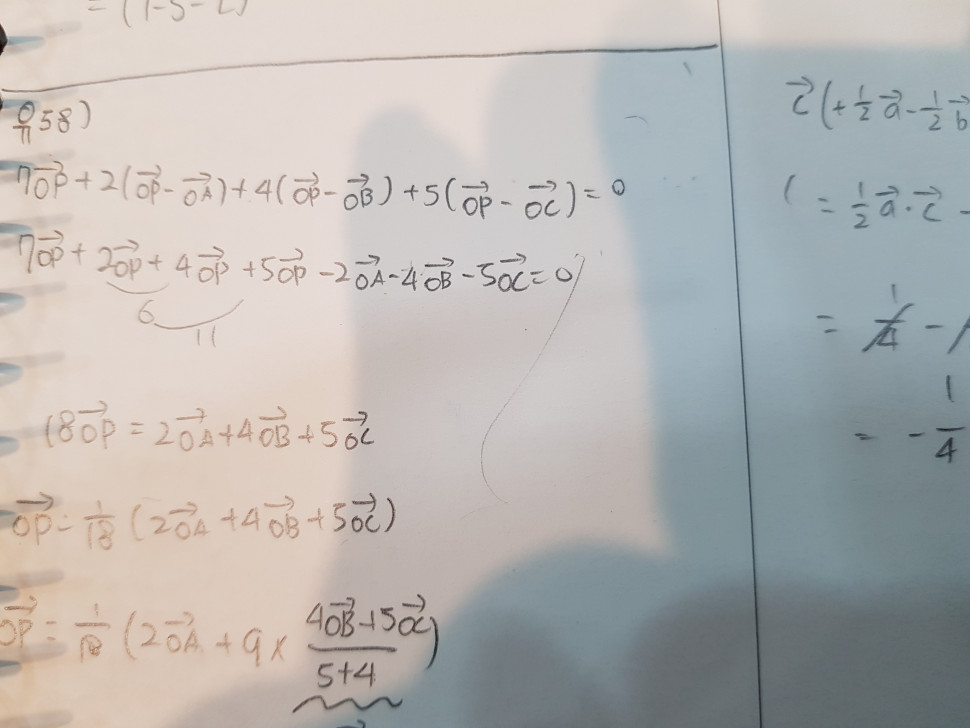 = (1-s-t)
058)
7OP→ + 2(OP→ - OA→) + 4(OP→ - OB→) + 5(OP→ - OC→) = 0
7OP→ + 2OP→ + 4OP→ + 5OP→ - 2OA→ - 4OB→ - 5OC→ = 0
6
11
18OP→ = 2OA→ + 4OB→ + 5OC→
OP→ = 1/18 (2OA→ + 4OB→ + 5OC→)
OP→ = 1/18 (2OA→ + 9 × (4OB→ + 5OC→)/(5+4))
c→(+1/2 a→ - 1/2 b→
( = 1/2 a→·c→ -
1
= 4 -
= - 1/4